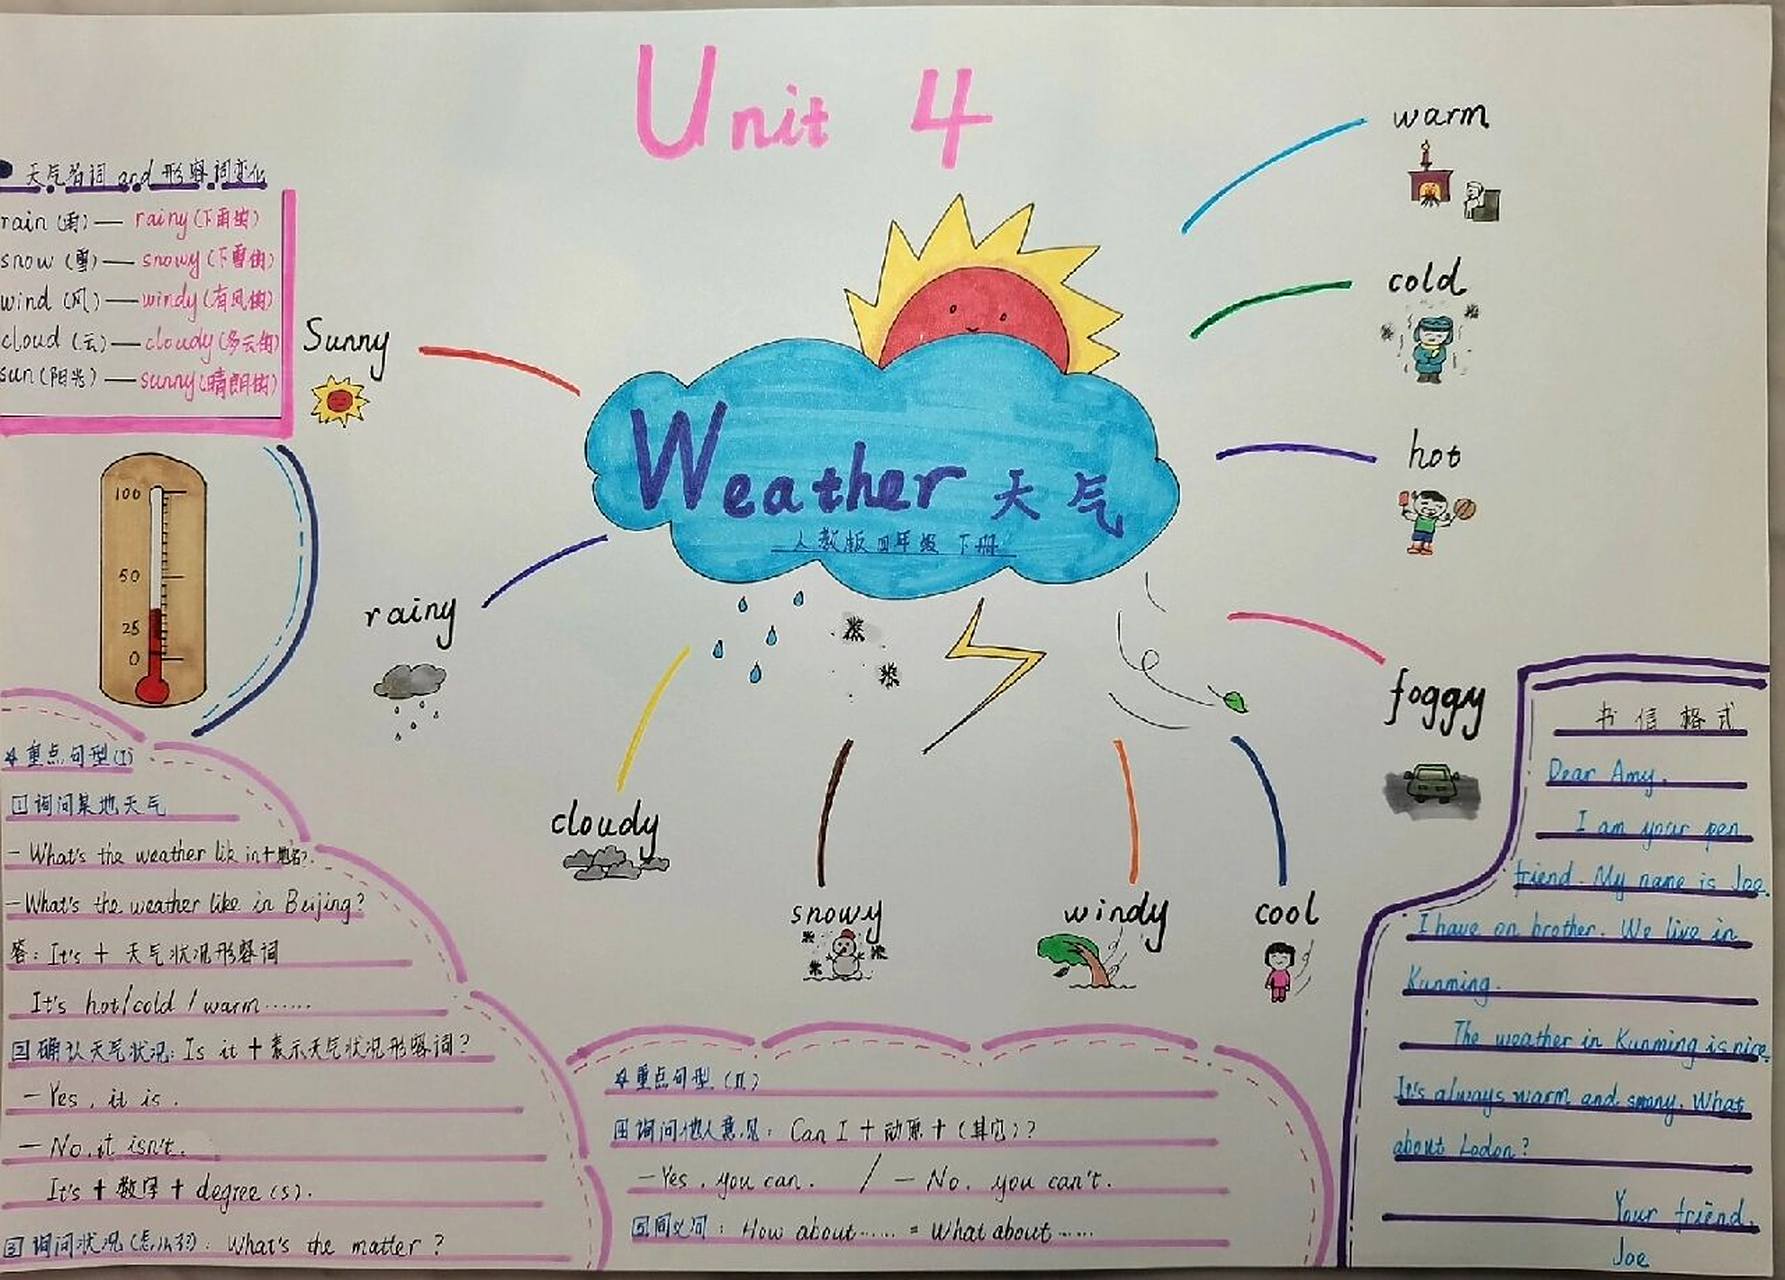 Unit 4
天气名词 and 形容词变化
rain (雨) — rainy (下雨的)
snow (雪) — snowy (下雪的)
wind (风) — windy (有风的)
cloud (云) — cloudy (多云的)
sun (阳光) — sunny (晴朗的)
Sunny
rainy
cloudy
snowy
windy
cool
warm
cold
hot
foggy
Weather 天气
人教版四年级 下册
100
50
25
0
重点句型(I)
1 询问某地天气
- What's the weather lik in+地名?.
- What's the weather like in Beijing?
答: It's + 天气状况形容词
It's hot/cold / warm ······
2 确认天气状况: Is it + 表示天气状况形容词?
- Yes, it is.
- No, it isn't.
It's + 数字 + degree (s).
3 询问状况(怎么了): What's the matter ?
重点句型 (II)
询问他人意见: Can I + 动原 + (其它)?
- Yes, you can. / - No, you can't.
同义词: How about ······ = What about ······
书信格式
Dear Amy.
I am your pen
friend. My name is Joe.
I have on brother. We live in
Kunming.
The weather in Kunming is nice.
It's always warm and What
about Lodon?
Your friend,
Joe